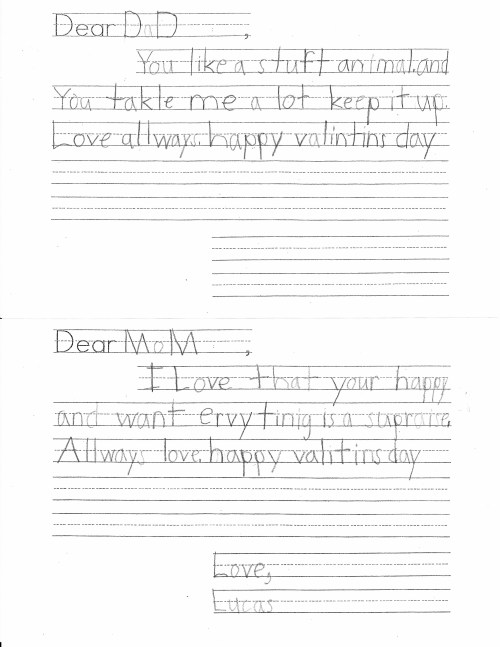 Dear DaD,
You like a stuft animal.and
You takle me a lot keep it up.
Love allways. happy valintins day
Dear MoM,
I Love that your happy
and want ervytinig is a supraise.
Allways love. happy valitinsday
Love,
Lucas